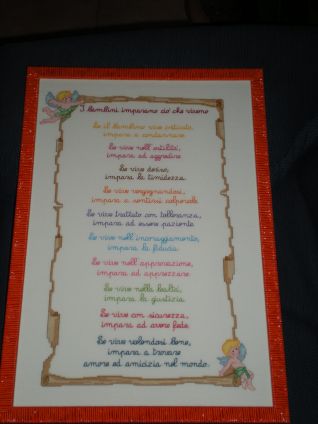 I bambini imparano cio' che vivono
Se il bambino vive criticato,
impara a condannare.
Se vive nell'ostilità,
impara ad aggredire
Se vive deriso,
impara la timidezza.
Se vive vergognandosi,
impara a sentirsi colpevole
Se vive trattato con tolleranza,
impara ad essere paziente
Se vive nell'incoraggiamento,
impara la fiducia
Se vive nell'approvazione,
impara ad apprezzare.
Se vive nella lealtà,
impara la giustizia.
Se vive con sicurezza,
impara ad avere fede.
Se vive volendosi bene,
impara a trovare
amore ed amicizia nel mondo.